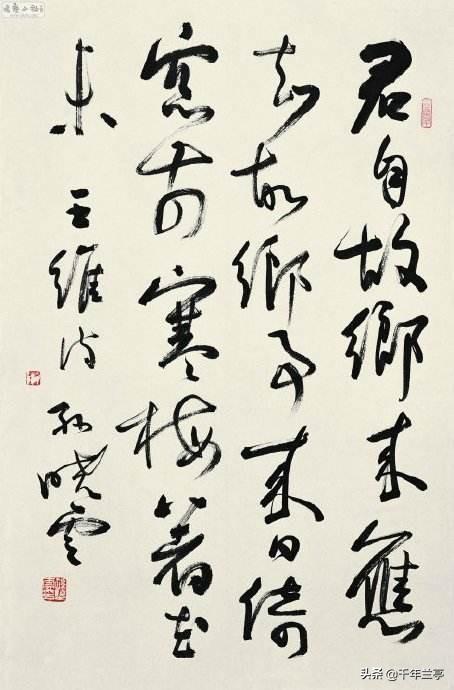 君自故鄉来應
知故鄉事来日綺
窓前寒梅著花
未 王維詩 孫曉雲
头条@千年兰亭